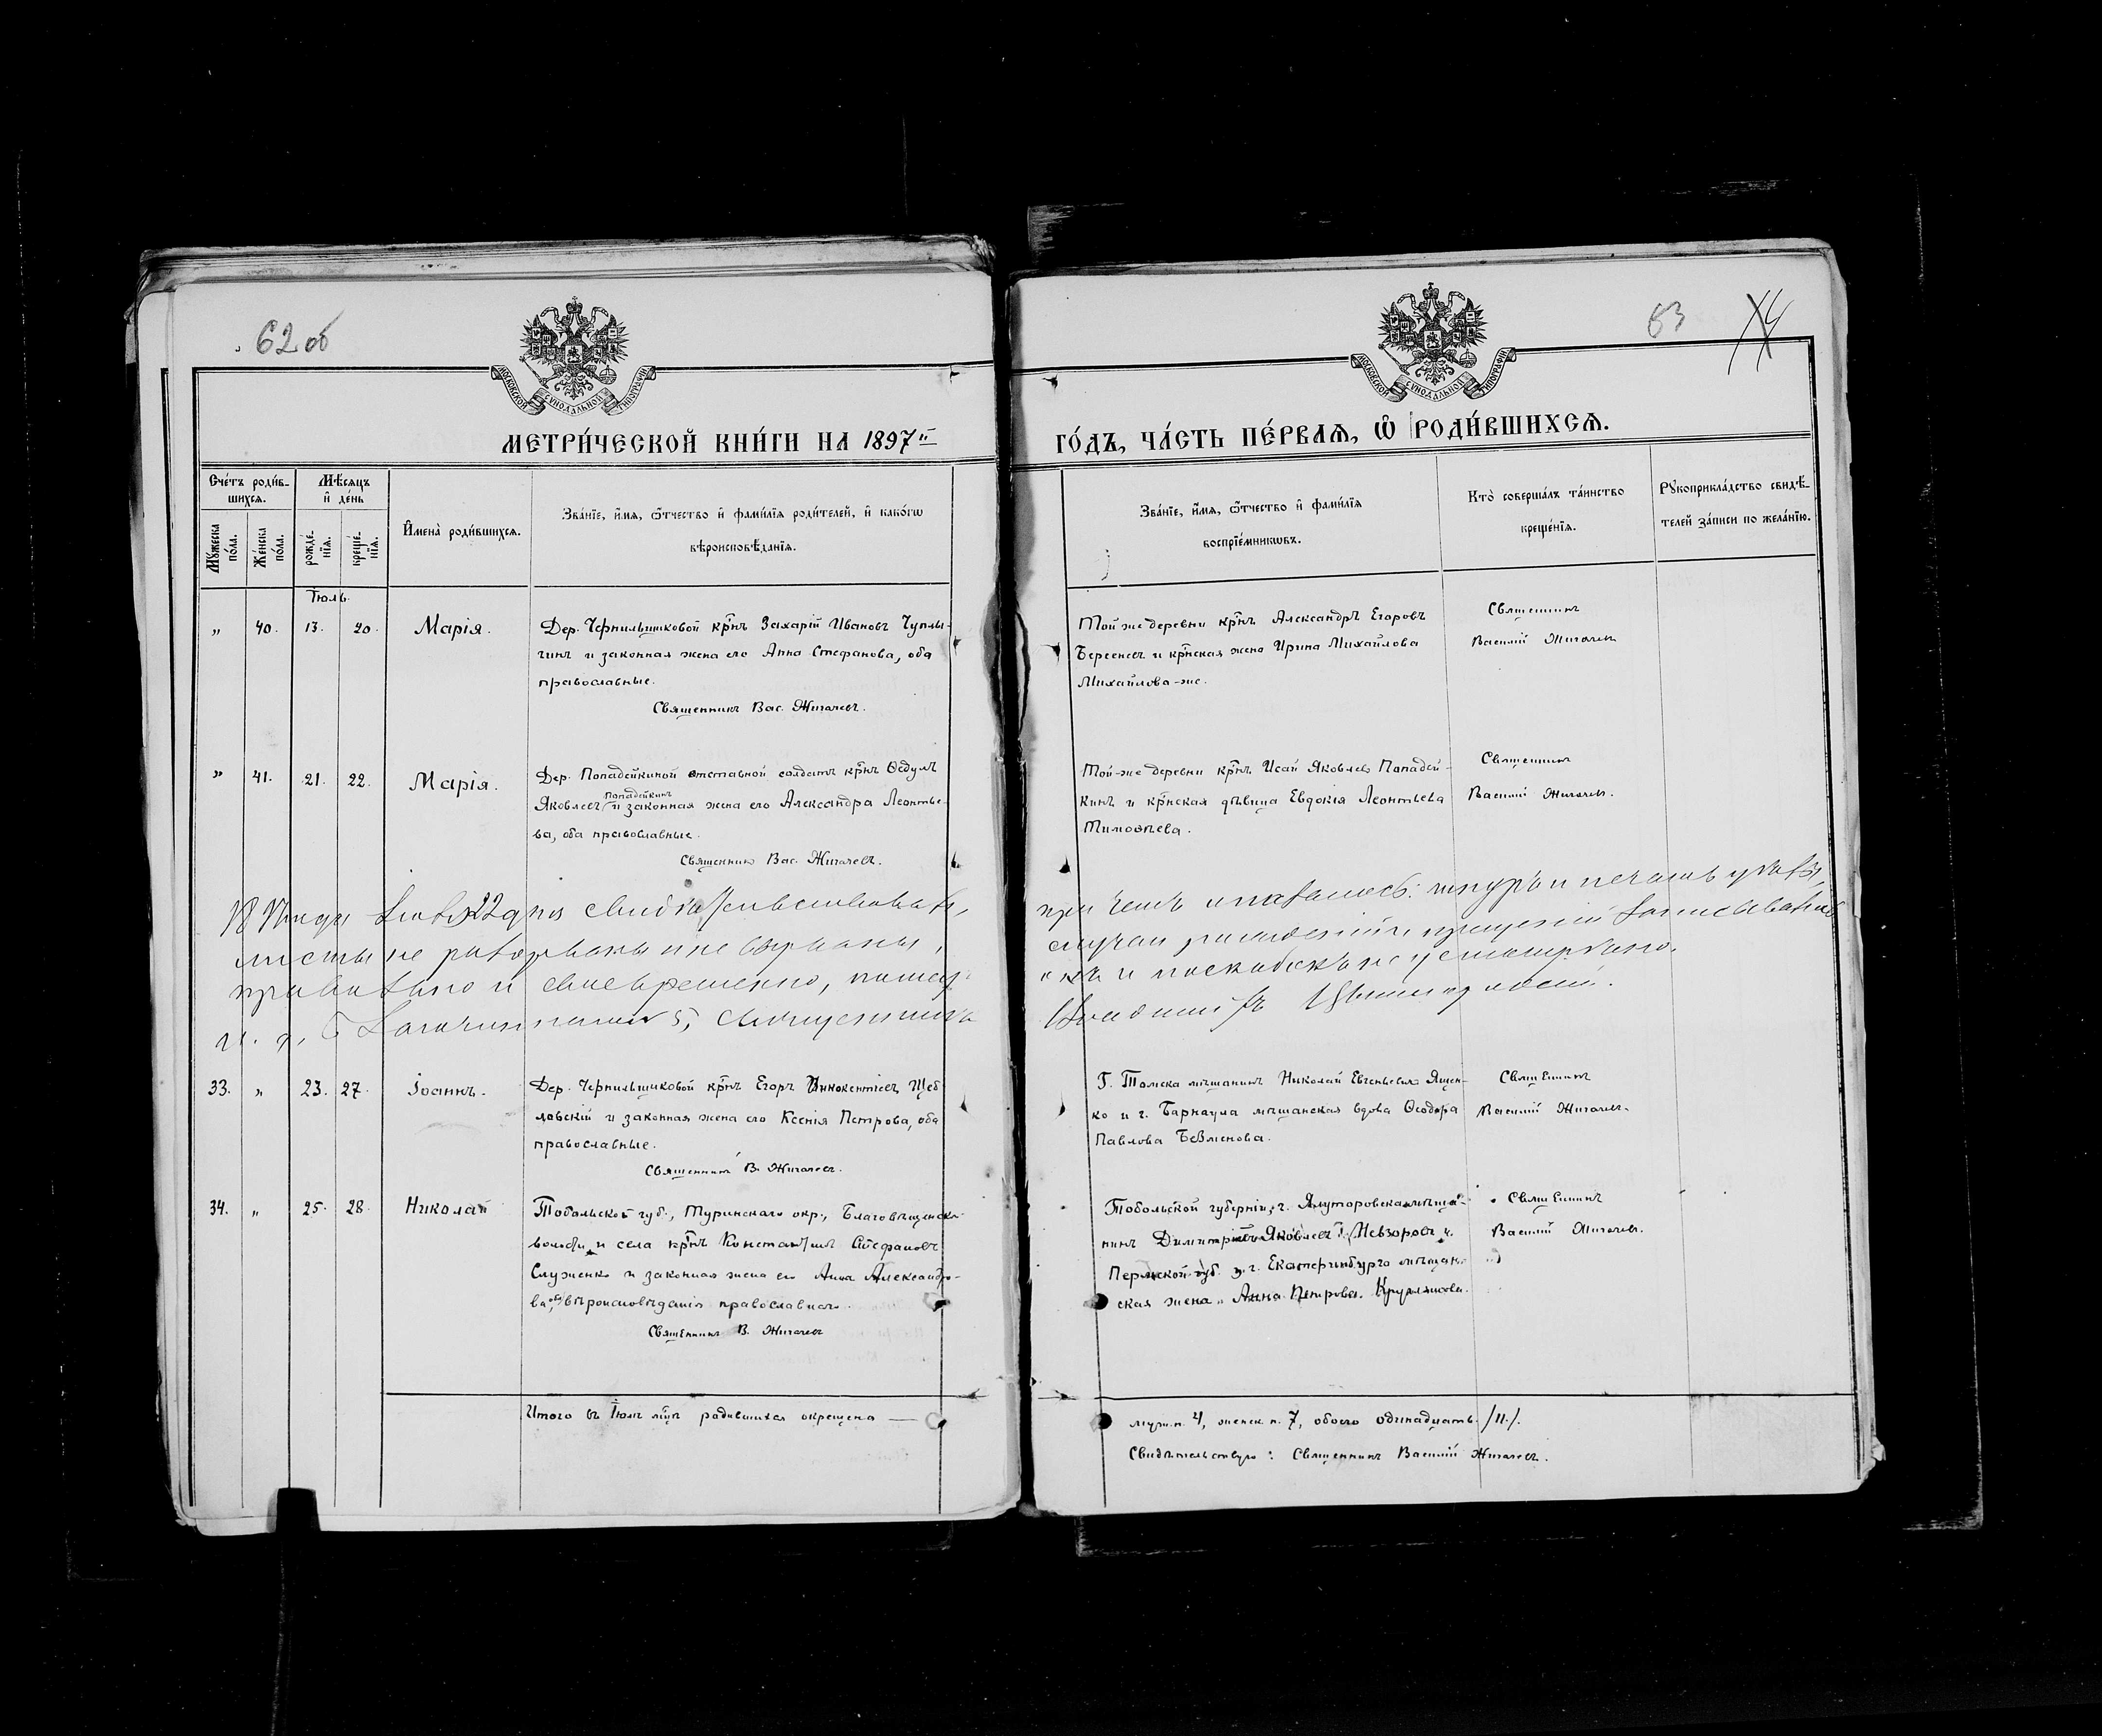 62 об
МОСКОВСКОЙ СѴНОДАЛЬНОЙ ТИПОГРАФІИ
МЕТРИ́ЧЕСКОЙ КНИ́ГИ НА 1897й
Сче́тъ роди́в-
шихся.
Мѣ́сяцъ
и҆ де́нь
Мꙋ́жеска
по́ла.
Же́нска
по́ла.
рожде́-
нїя.
креще́-
нїя.
И҆мена̀ роди́вшихся.
Зва́нїе, и҆́мя, ѻ҆́тчество и҆ фами́лїя роди́телей, и҆ како́гѡ
вѣроисповѣ́данїя.
Іюль.
„ 40. 13. 20. Марія.
Дер. Чернильщиковой кр̃нъ Захарій Ивановъ Чуплы-
гинъ и законная жена его Анна Стефанова, оба
православные.
Священникъ Вас. Жигачевъ.
„ 41. 21. 22. Марія.
Дер. Попадейкиной отставной солдатъ кр̃нъ Ѳедулъ
Яковлевъ Попадейкинъ и законная жена его Александра Леонтье-
ва, оба православные.
Священникъ Вас. Жигачевъ.
22 дня свидѣтельствовалъ,
листы не разорваны и не вырваны,
правильно и своевременно,
Священникъ
33. „ 23. 27. Іоаннъ.
Дер. Чернильщиковой кр̃нъ Егоръ Иннокентіевъ Щеб-
ловскій и законная жена его Ксенія Петрова, оба
православные.
Священникъ В. Жигачевъ.
34. „ 25. 28. Николай
Тобольской губ., Туринскаго окр., Благовѣщенск.
волости и села кр̃нъ Константинъ Стефановъ
Служенко и законная жена его Анна Александро-
ва, оба вѣроисповѣданія православнаго.
Священникъ В. Жигачевъ
Итого въ Іюлѣ мц̃ѣ родившихся окрещено —
63
МОСКОВСКОЙ СѴНОДАЛЬНОЙ ТИПОГРАФІИ
ГО́ДЪ, ЧА́СТЬ ПЕ́РВАЯ, Ѽ РОДИ́ВШИХСЯ.
Зва́нїе, и҆́мя, ѻ҆́тчество и҆ фами́лїя
воспрїе́мникѡвъ.
Кто̀ соверша́лъ та́инство
креще́нїя.
Рꙋкоприкла́дство свидѣ́-
телей за́писи по жела́нїю.
Той же деревни кр̃нъ Александръ Егоровъ
и кр̃нская жена Ирина Михайлова
Михайлова-же.
Священникъ
Василій Жигачевъ
Той-же деревни кр̃нъ Исай Яковлевъ Попадей-
кинъ и кр̃нская дѣвица Евдокія Леонтьева
Тимоѳеева.
Священникъ
Василій Жигачевъ.
при чемъ оказалось: шнуръ и печать цѣлы,
случаи рожденій и крещеній записываются
Г. Томска мѣщанинъ Николай Евгеньевъ Ящен-
ко и г. Барнаула мѣщанская вдова Ѳеодора
Павлова Безменова.
Священникъ
Василій Жигачевъ.
Тобольской губерніи, г. Ялуторовска мѣща-
нинъ Димитрій Яковлевъ Невзоровъ и
Пермской губ. г. Екатеринбурга мѣщан-
ская жена Анна Петрова
Священникъ
Василій Жигачевъ.
муж. п. 4, женск. п. 7, обоего одинадцать. /11./.
Свидѣтельствую: Священникъ Василій Жигачевъ.